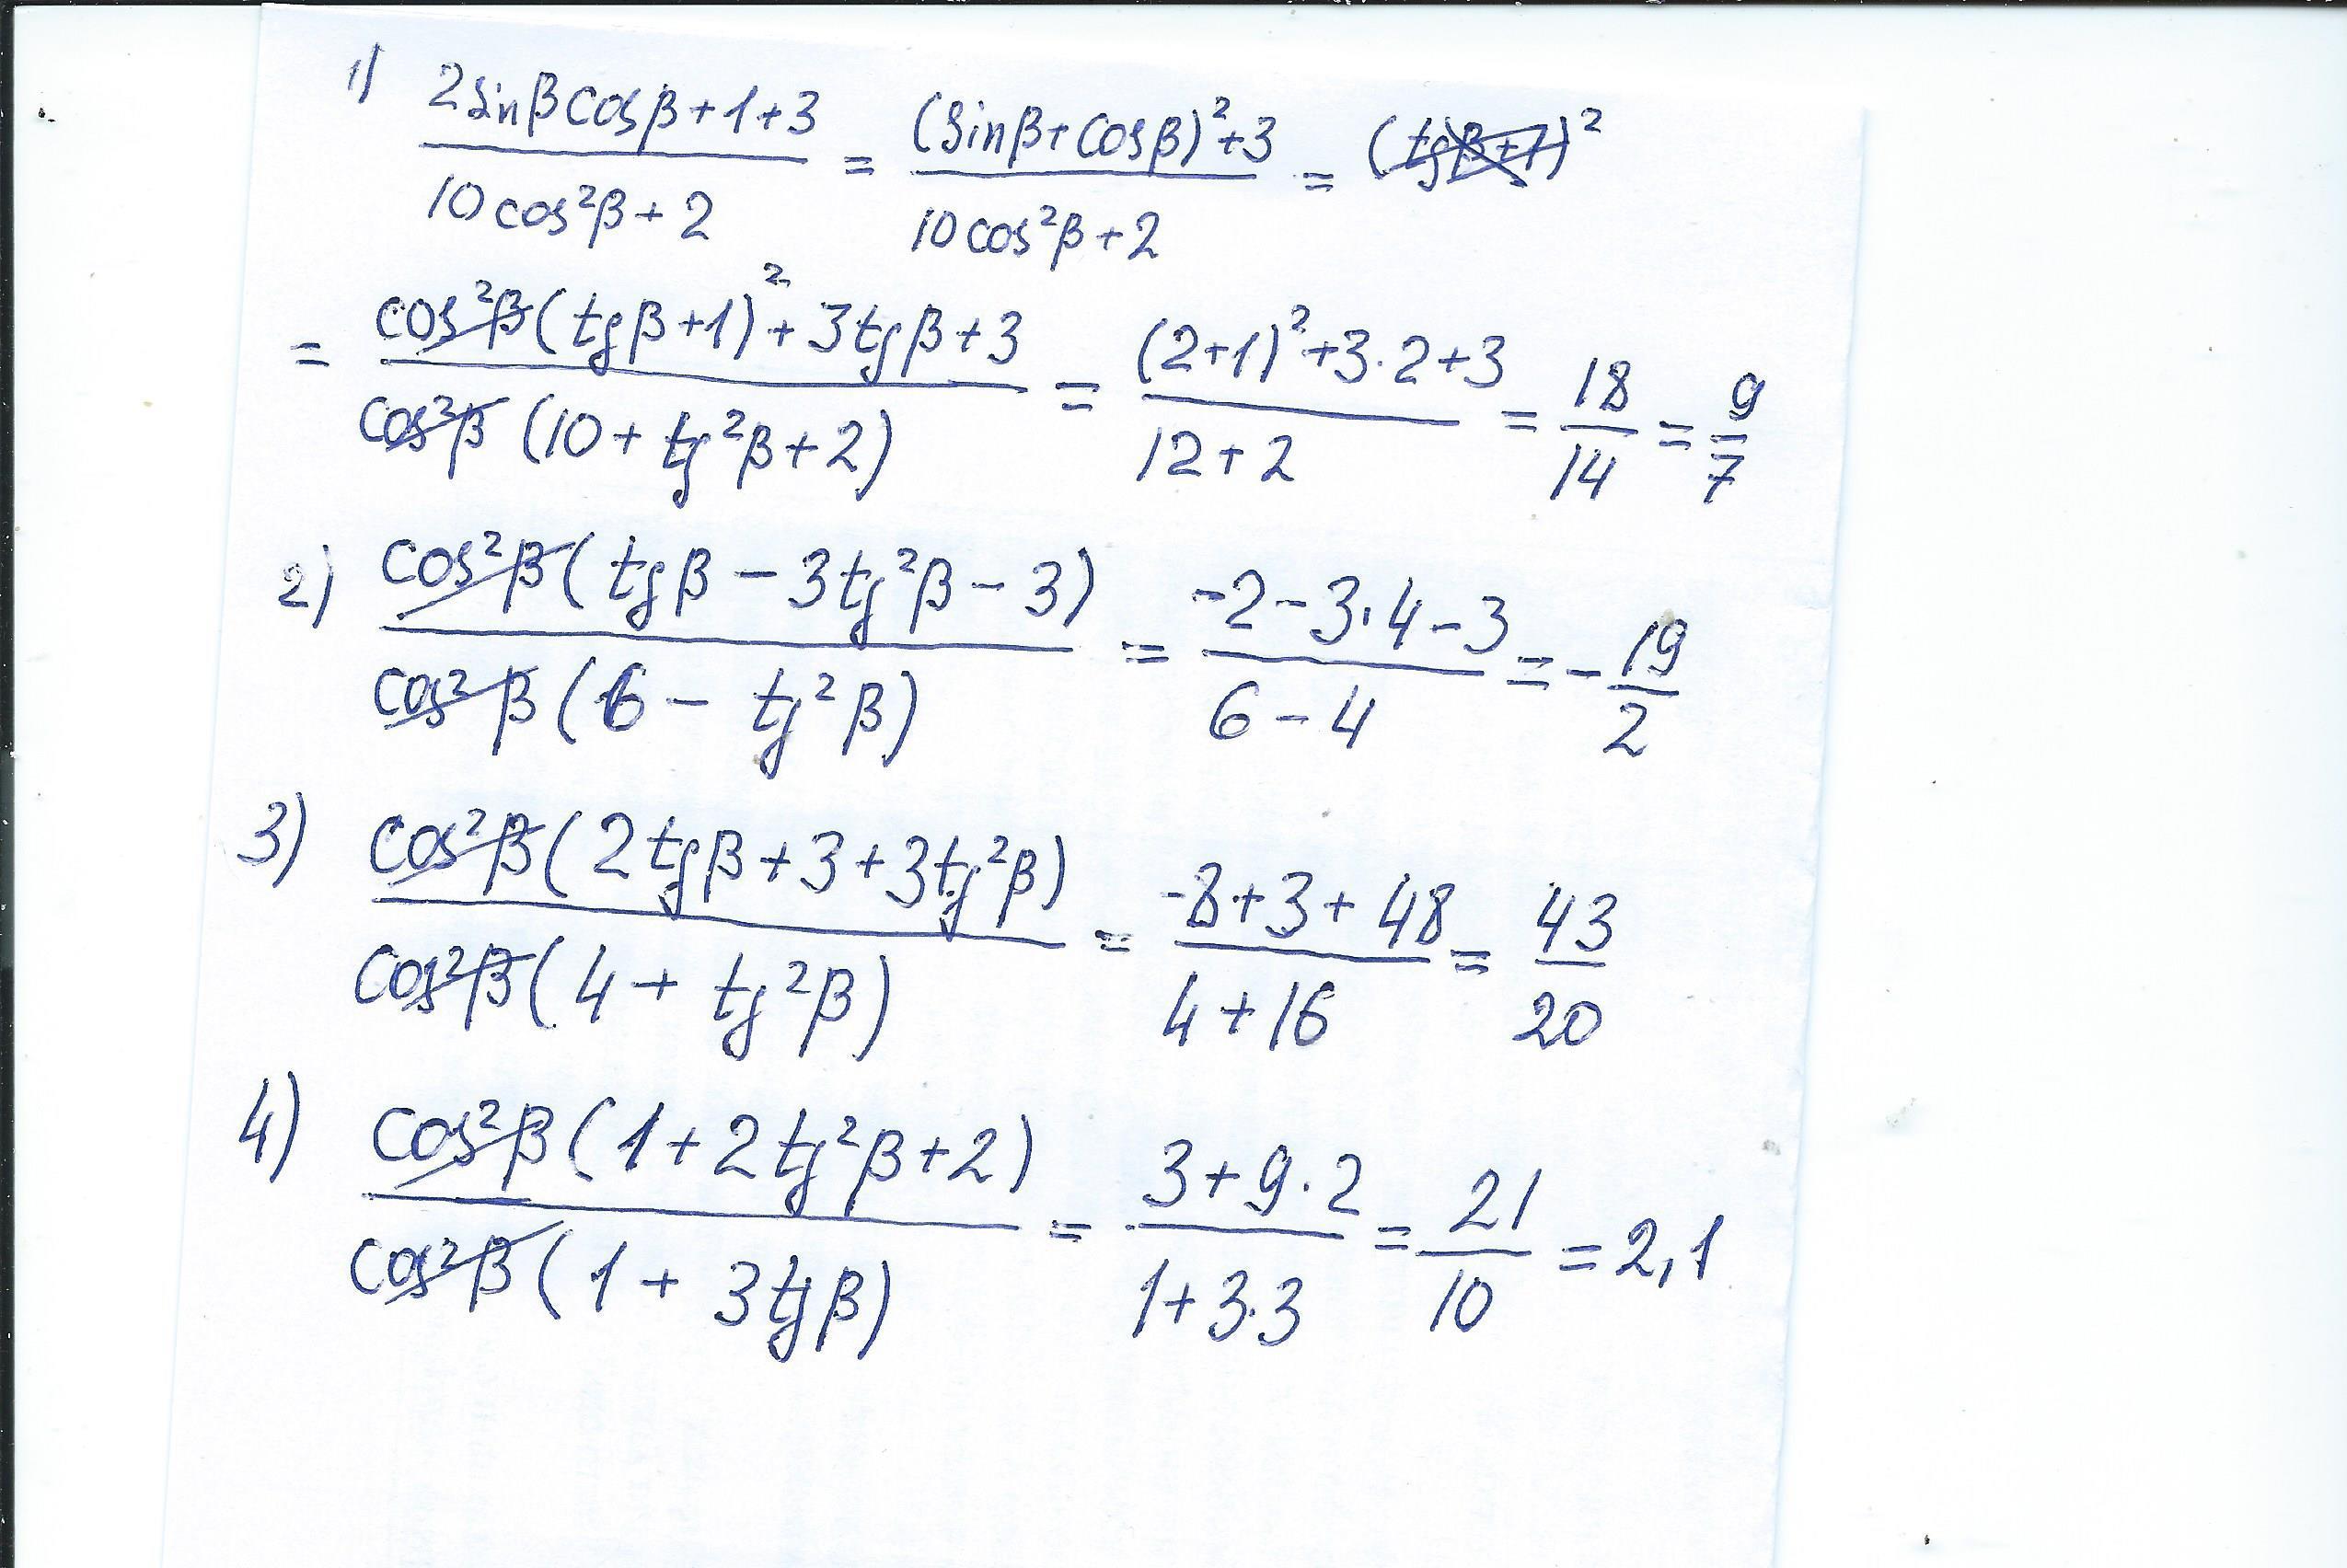 1) (2sinβcosβ+1+3)/(10cos²β+2) = ((sinβ+cosβ)²+3)/(10cos²β+2) = (tgβ+1)²
= (cos²β(tgβ+1)²+3tgβ+3)/(cos²β(10+tg²β+2)) = ((2+1)²+3·2+3)/(12+2) = 18/14 = 9/7
2) (cos²β(tgβ-3tg²β-3))/(cos²β(6-tg²β)) = (-2-3·4-3)/(6-4) = -19/2
3) (cos²β(2tgβ+3+3tg²β))/(cos²β(4+tg²β)) = (-8+3+48)/(4+16) = 43/20
4) (cos²β(1+2tg²β+2))/(cos²β(1+3tgβ)) = (3+9·2)/(1+3·3) = 21/10 = 2,1